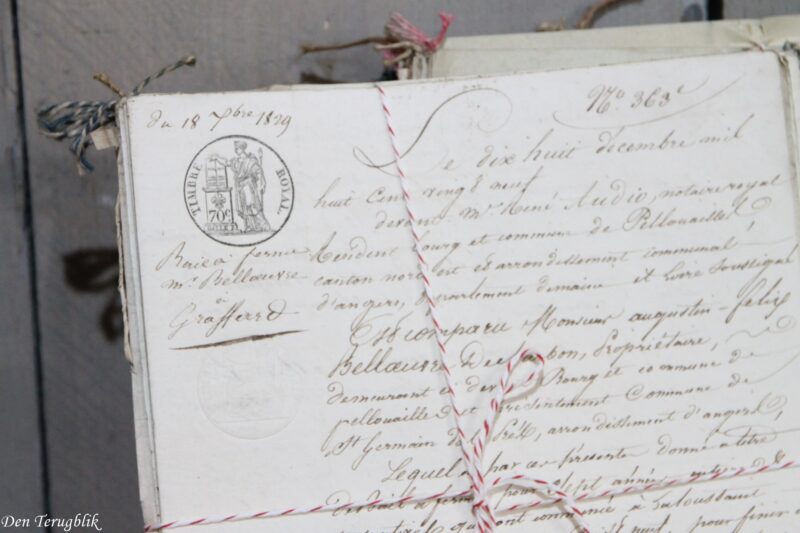 du 18 xbre 1829
No. 363e
TIMBRE ROYAL.
70c
Baie à ferme
Mr. Bellœuvre
à
Grafferd
Le dix huit decembre mil
huit cent vingt neuf
devant Mr. René Audio, notaire royal
Resident bourg et commune de Pellouailles
canton nord est et arrondissement communal
d'angers, departement de maine et Loire soussigné
Est comparu Monsieur augustin-felix
Bellœuvre Propriétaire,
demeurant ci devant Bourg et commune de
pellouailles et présentement Commune de
St. Germain des Prés, arrondissement d'angers,
Lequel a par ces présente donné à titre
de bail à ferme pour sept années entières
qui ont commencé à la Toussaint
neuf, pour finir à
Den Terugblik